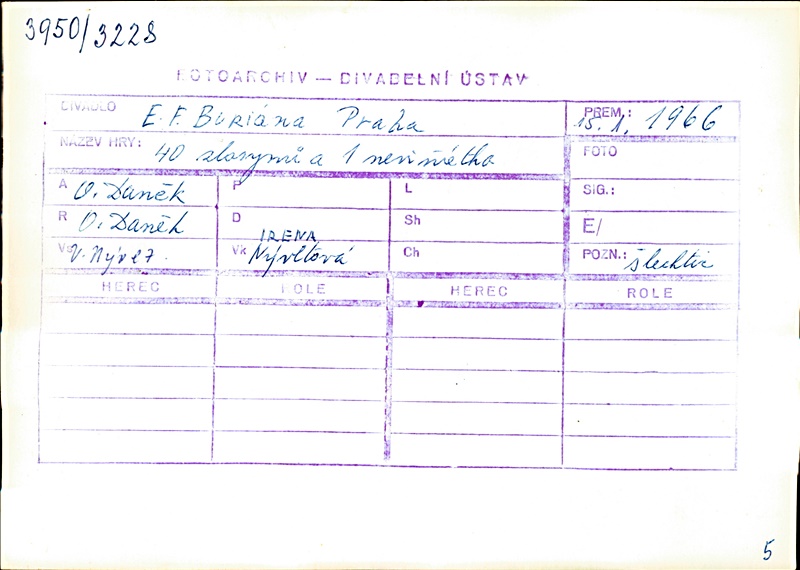 3950/3228
FOTOARCHIV — DIVADELNÍ ÚSTAV
DIVADLO E. F. BURIána Praha
PREM.: 15. 1. 1966
NÁZEV HRY: 40 zlosynů a 1 neviňátko
FOTO
A O. Daněk
P
L
SIG.:
R O. Daněk
D
Sh
E/
Vs V. Nývlt
Vk IRENA Nývltová
Ch
POZN.: šlechtic
HEREC ROLE HEREC ROLE
5